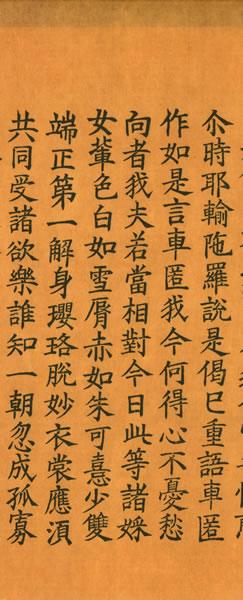 尒時耶輸陁羅說是偈已重語車匿
作如是言車匿我今何得心不憂愁
向者我夫若當相對今日此等諸婇
女輩色白如雪脣赤如朱可憙少雙
端正第一解身瓔珞脫妙衣裳應須
共同受諸欲樂誰知一朝忽成孤寡